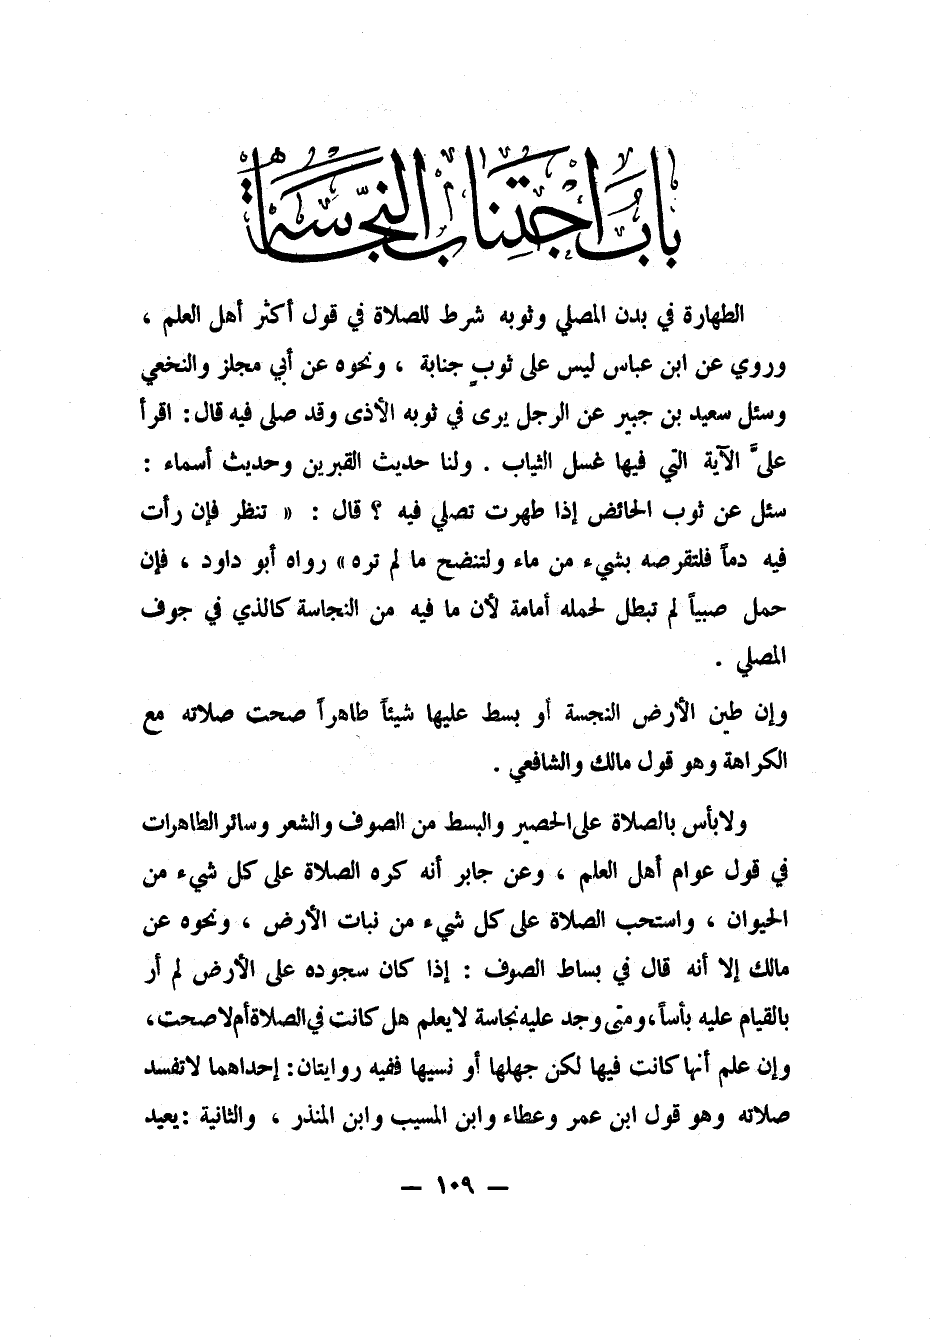 بَابُ اجْتِنَابِ النَّجَاسَةِ
الطهارة في بدن المصلي وثوبه شرط للصلاة في قول أكثر أهل العلم ،
وروي عن ابن عباس ليس على ثوبٍ جنابة ، ونحوه عن أبي مجلز والنخعي
وسئل سعيد بن جبير عن الرجل يرى في ثوبه الأذى وقد صلى فيه قال : اقرأ
عليَّ الآية التي فيها غسل الثياب . ولنا حديث القبرين وحديث أسماء :
سئل عن ثوب الحائض إذا طهرت تصلي فيه ؟ قال : « تنظر فإن رأت
فيه دماً فلتقرصه بشيء من ماء ولتنضح ما لم تره » رواه أبو داود ، فإن
حمل صبياً لم تبطل لحمله أمامة لأن ما فيه من النجاسة كالذي في جوف
المصلي .
وإن طين الأرض النجسة أو بسط عليها شيئاً طاهراً صحت صلاته مع
الكراهة وهو قول مالك والشافعي .
ولا بأس بالصلاة على الحصير والبسط من الصوف والشعر وسائر الطاهرات
في قول عوام أهل العلم ، وعن جابر أنه كره الصلاة على كل شيء من
الحيوان ، واستحب الصلاة على كل شيء من نبات الأرض ، ونحوه عن
مالك إلا أنه قال في بساط الصوف : إذا كان سجوده على الأرض لم أر
بالقيام عليه بأساً ، ومتى وجد عليه نجاسة لا يعلم هل كانت في الصلاة أم لا صحت ،
وإن علم أنها كانت فيها لكن جهلها أو نسيها ففيه روايتان : إحداهما لا تفسد
صلاته وهو قول ابن عمر وعطاء وابن المسيب وابن المنذر ، والثانية : يعيد
— ١٠٩ —